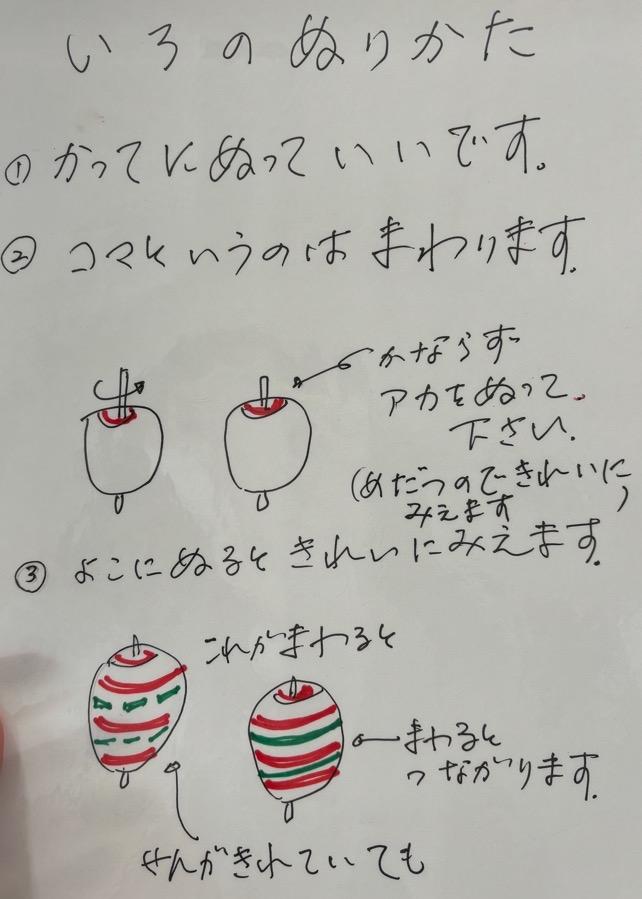 いろのぬりかた
① かってにぬっていいです。
② コマというのはまわります。
かならず
アカをぬって
下さい.
(めだつのできれいに
みえます)
③ よこにぬるときれいにみえます。
これがまわると
まわると
つながります.
せんがきれていても